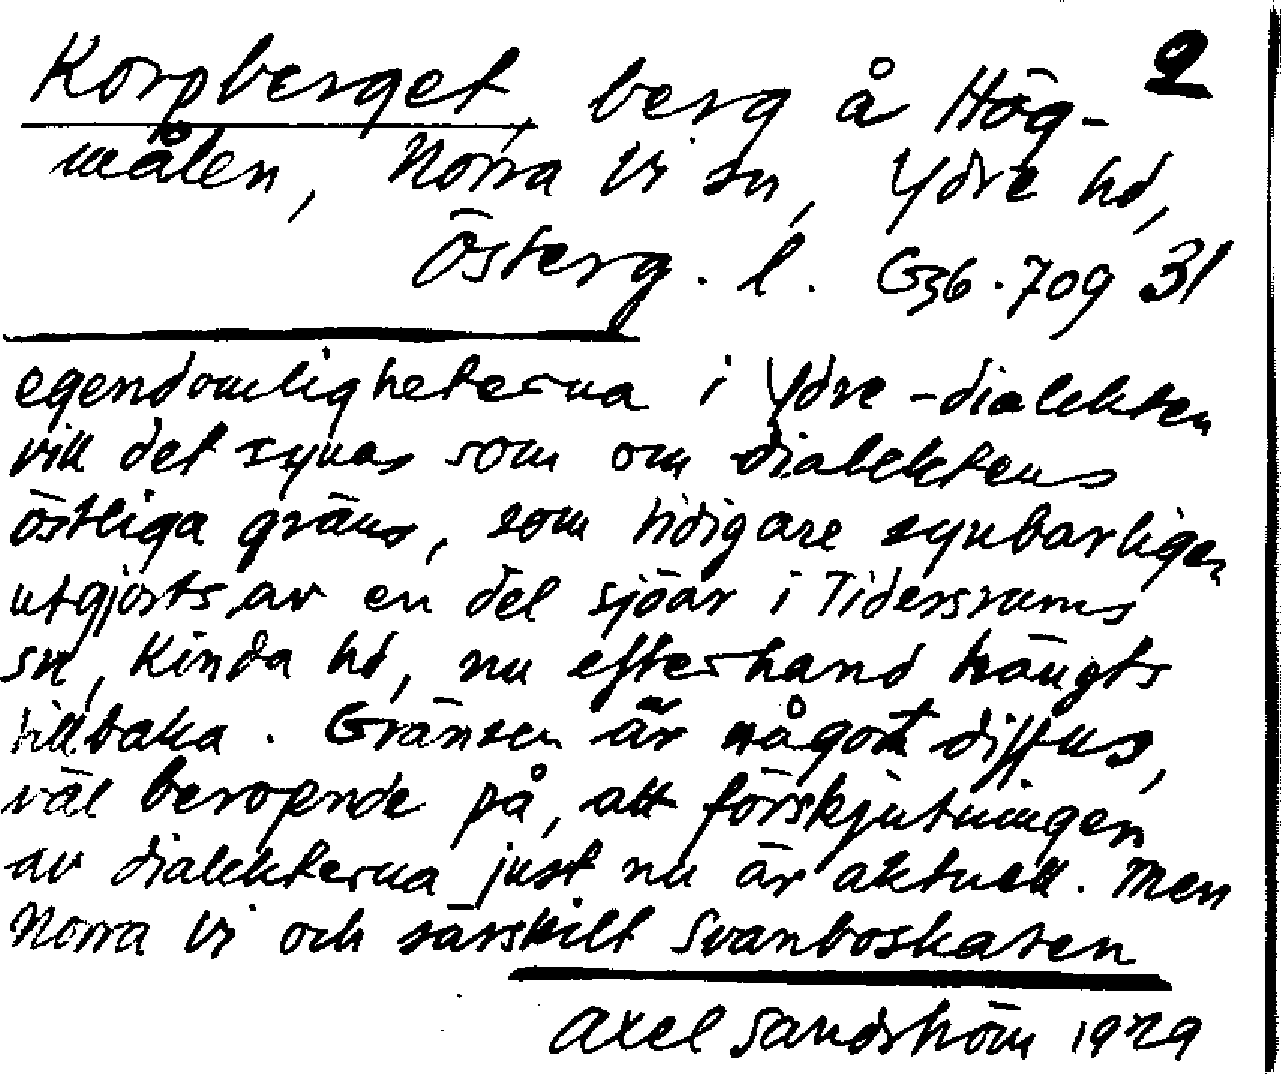 Korpberget, berg å Hög- 2
målen, Norra Vi sn, Ydre hd,
Österg. l. G36.709 31
egendomligheterna i Ydre-dialekten
vill det synas som om dialektens
östliga gräns, som tidigare synbarligen
utgjorts av en del sjöar i Tidersrums
sn, Kinda hd, nu efterhand trängts
tillbaka. Gränsen är något diffus,
väl beroende på, att förskjutningen
av dialekterna just nu är aktuell. Men
Norra Vi och särskilt Svanboskaten
Axel Sandström 1929